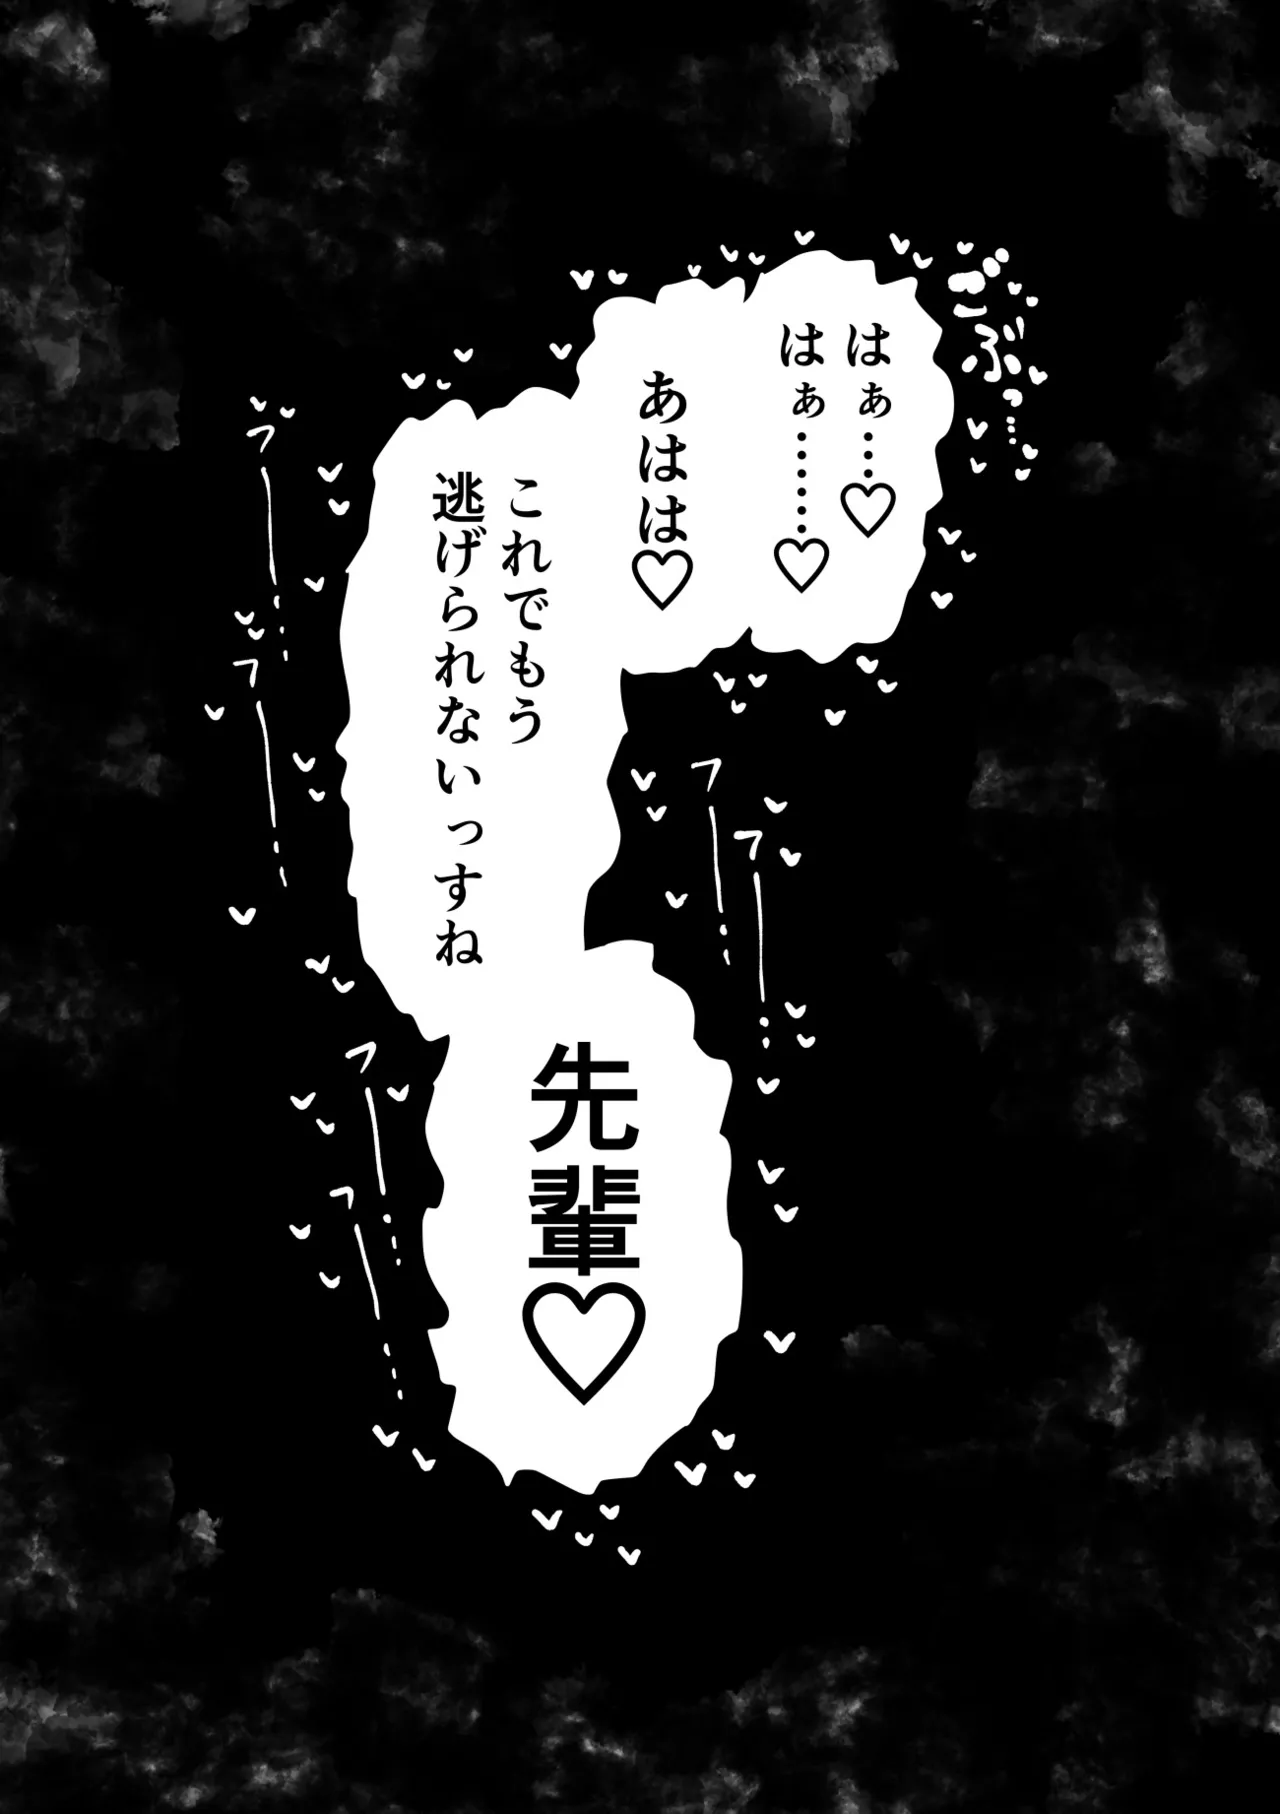 ごぷっ…
はぁ…♡
はぁ……♡
あはは♡
これでもう
逃げられないっすね
先輩♡
フー…
フー…
フー…
フー…
フー…
フー…